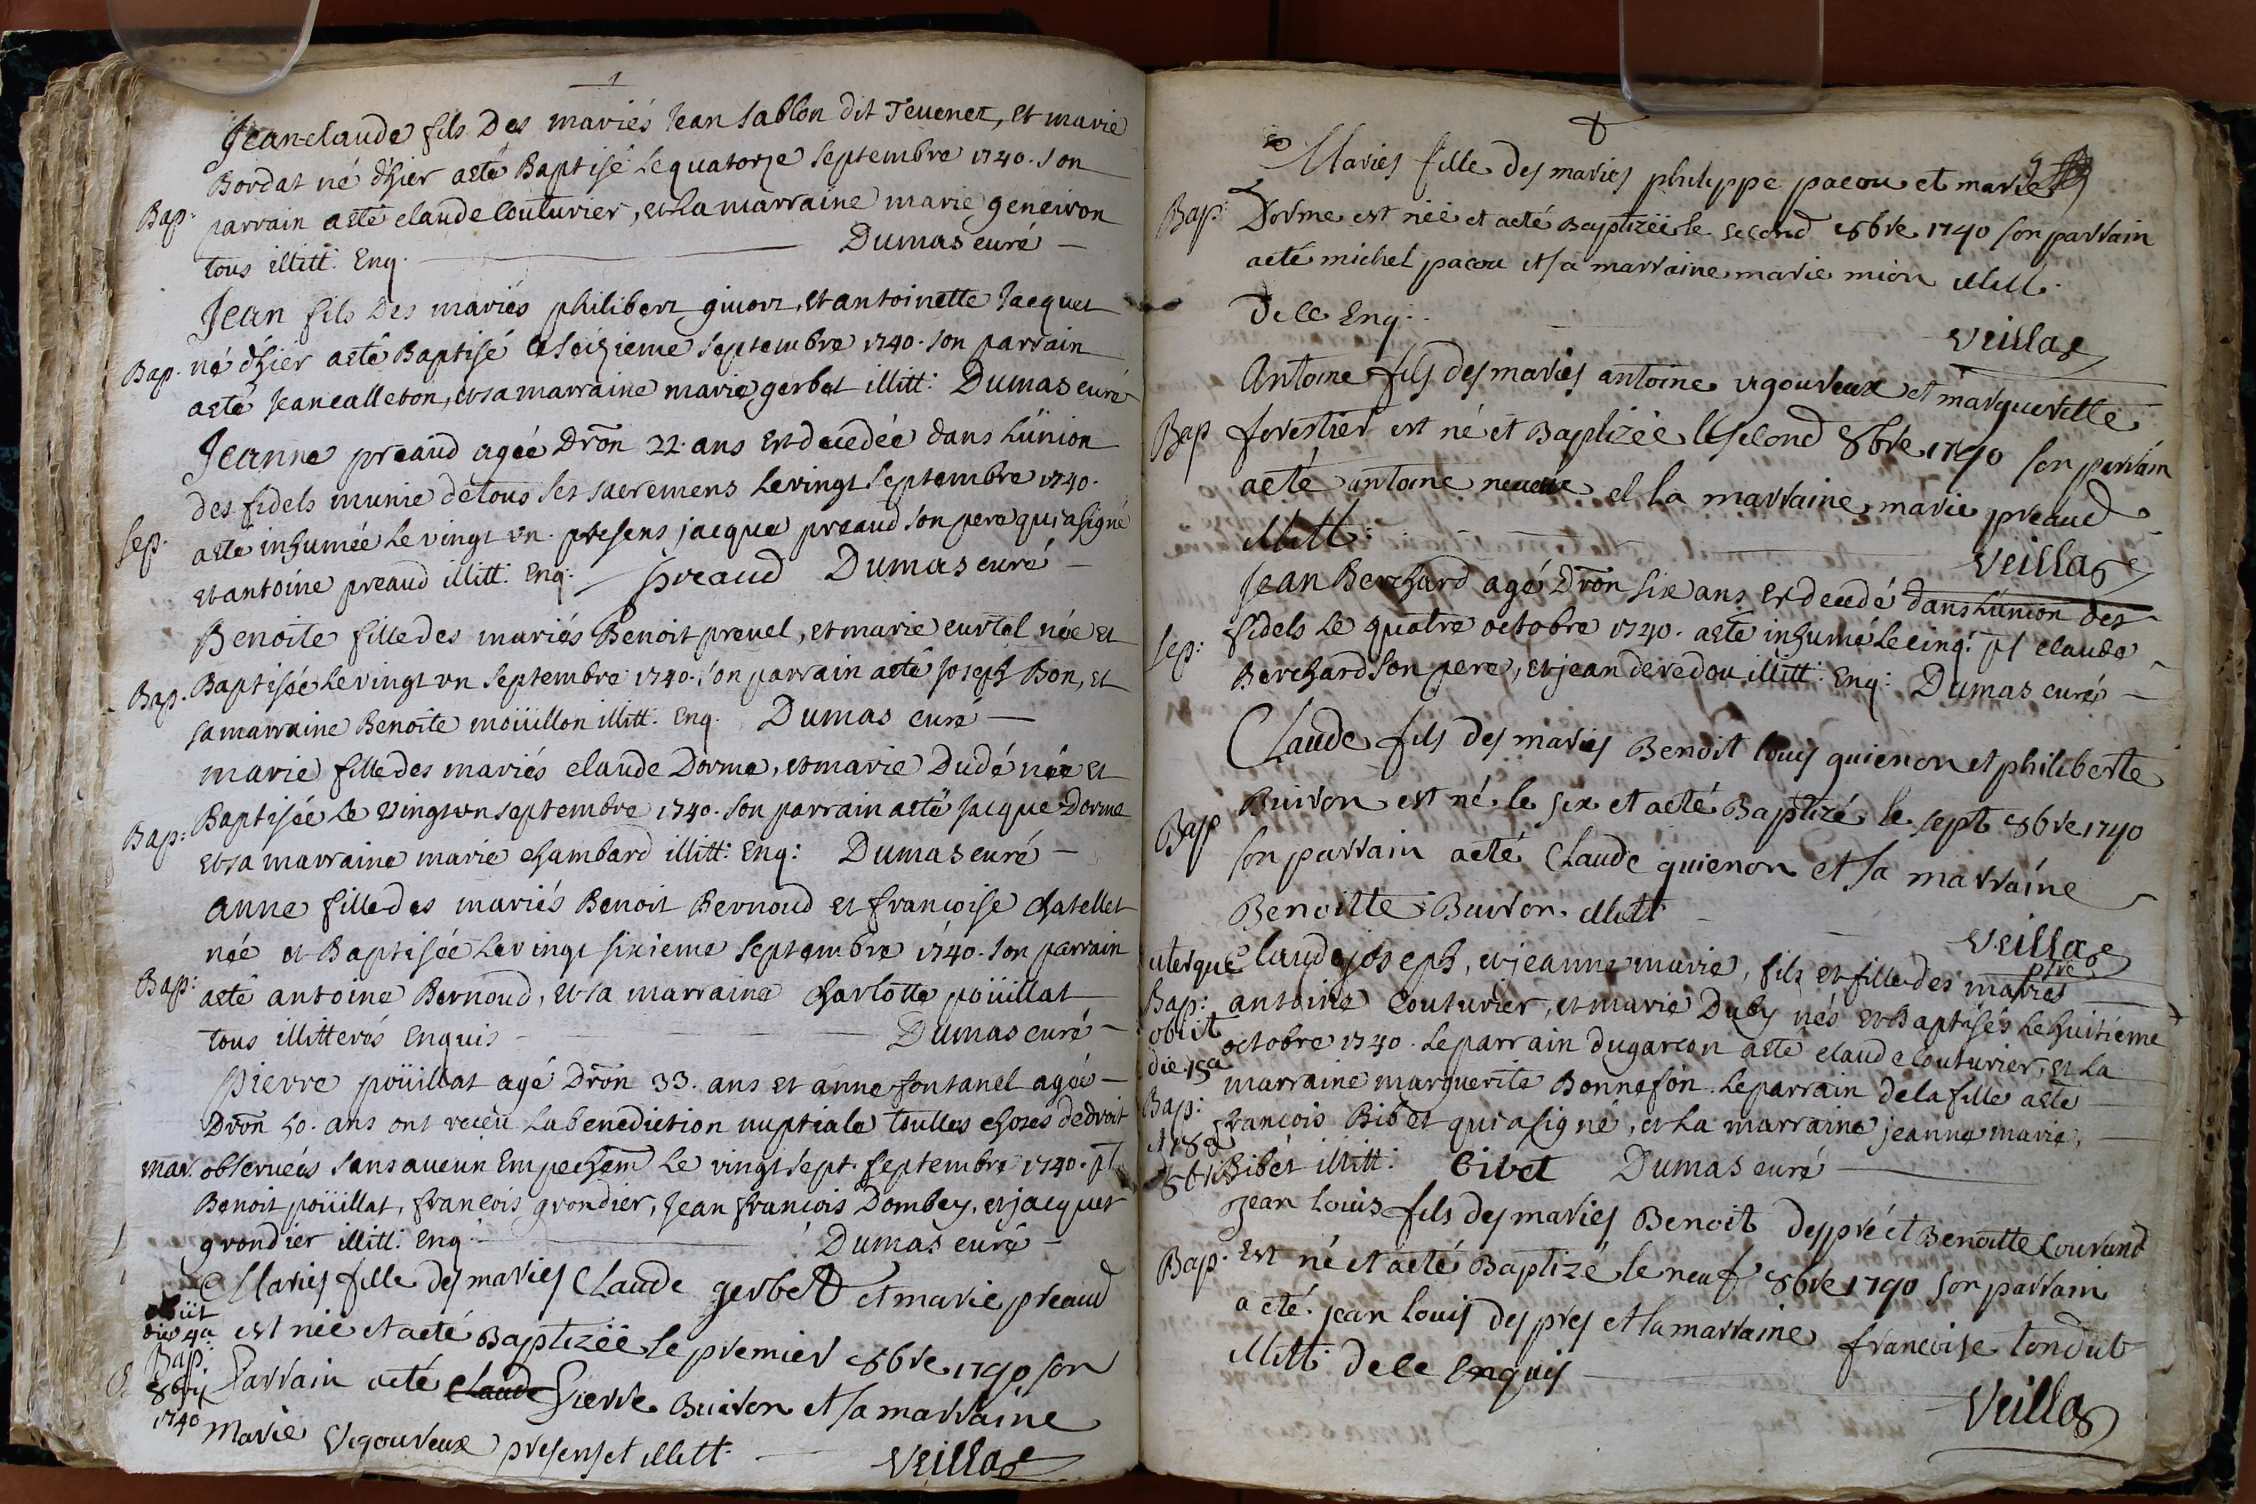 Jean-claude fils Des mariés Jean sablon dit Teuenet, et marie
Bordat né d'hier aeté Baptisé Lequatorze septembre 1740. son
Bap: parrain aeté claude Couturier, et La marraine marie geneivon
tous illitt. Enq. Dumas curé
Jean fils Des mariés philibert givort, et antoinette Jacquet
Bap. né d'hier aeté Baptisé Le seizieme septembre 1740. son parrain
aeté Jean calleton, et sa marraine marie gerbet illitt: Dumas curé
Jeanne préaud agée Dron 22. ans Est decedée dans L'union
des fidels munie de tous ses sacremens Le vingt septembre 1740.
Sep. aeté inhumée Le vingt un. presens jacque preaud son pere qui a signé
et antoine preaud illitt. Enq: preaud Dumas curé
Benoite fille des mariés Benoit prevel, et marie curtel née et
Bap. Baptisée Le vingt un septembre 1740. son parrain aeté joseph Bon, et
sa marraine Benoite moüillon illitt. Enq. Dumas curé
marie fille des mariés claude Dorme, et marie Dudé née et
Bap: Baptisée Le vingt un septembre 1740. son parrain aeté jacque Dorme
et sa marraine marie chambard illitt: Enq: Dumas curé
anne fille des mariés Benoit Bernoud et francoise chatellet
née et Baptisée Le vingt sixieme septembre 1740. son parrain
Bap: aeté antoine Bernoud, et sa marraine charlotte poüillat
tous illitterés Enquis Dumas curé
pierre poüillat agé Dron 33. ans et anne fontanel agée
Dron 50. ans ont receu La benediction nuptiale toutes choses de droit
mar. observées sans aucun Empechem Le vingt sept. septembre 1740. pt
Benoit poüillat, francois grondier, Jean francois Dombey, et jacques
grondier illitt: Enq. Dumas curé
Maries fille des maries Claude gerbet et marie preaud
obiit die 4a est née et aeté Baptizëe le premier 8bre 1740 son
Bap: Parrain aeté Claude Pierre Buiron et sa marraine
8bris 1740 Marie vigoureux presens et illitt: veillas
Maries fille des maries philippe pacou et marie
Bap: Dorme est née et aeté Baptizëe le second 8bre 1740 son parrain
aeté michel pacou et sa marraine marie mion illitt.
De ce Enq. veillas
Antoine fils des maries antoine vigoureux et margueritte
Bap forestier est né et Baptizée le second 8bre 1740 son parrain
aeté antoine et la marraine marie preaud
illitt: veillas
Jean Berchard agé Dron six ans Est decedé dans L'union des
Sep: fidels Le quatre octobre 1740. aeté inhumé Le cinq. pt claude
Berchard son pere, et jean deredou illitt: Enq: Dumas curé
Claude fils des maries Benoit louis guienon et philiberte
Buiron est né le six et aeté Baptizé le sept 8bre 1740
Bap son parrain aeté Claude guienon et sa marraine
Benoitte Buiron. illitt veillas ptre
uterque Claude joseph, et jeanne marie, fils et fille des mariés
Bap: antoine Couturier, et marie Duby nés et Baptisés Le huitieme
obiit octobre 1740. Le parrain du garcon aeté claude Couturier, et La
die 15a marraine marguerite Bonnefon. Le parrain de la fille aeté
Bap: francois Bibet qui a signé, et La marraine jeanne marie,
Bibet illitt: Bibet Dumas curé
Jean Louis fils des maries Benoit despré et Benoitte Courand
Bap. Est né et aeté Baptizé le neuf 8bre 1740 son parrain
a eté. jean Louis des pres et sa marraine francoise tondut
illitt: de ce Enquis
veillas